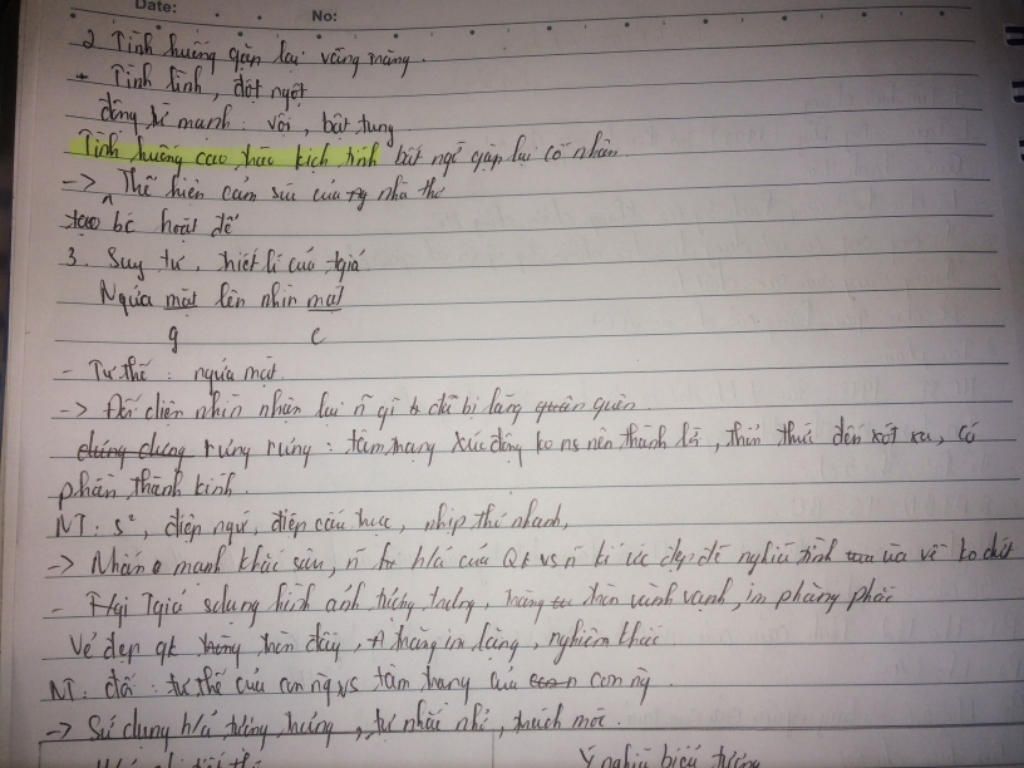 Date:
No:
2 Tình huống gặp lại vầng trăng.
+ Tình hình, đột ngột
động từ mạnh: vội, bật tung
Tình huống cao trào kịch tính bất ngờ gặp lại cố nhân
-> Thể hiện cảm xúc của nhà thơ
tạo bc hoặt để
3. Suy tư, triết lí của tgiả
Ngửa mặt lên nhìn mặt
g c
- Tư thế: ngửa mặt.
-> Đối diện nhìn nhận lại n gì đã bị lãng quên
rưng rưng: tâm trạng xúc động ko ns nên thành lời, thổn thức đến xót xa, có
phần thành kính.
NT: s², điệp ngữ, điệp cấu trúc, nhịp thơ nhanh,
-> Nhấn mạnh khắc sâu, n h/ả của QK vs n kí ức đẹp đẽ nghĩa tình ùa về ko dứt
- Tgiả sdụng hình ảnh tượng trưng, trăng tròn vành vạnh, im phăng phắc
Vẻ đẹp qk tròn đầy, trăng im lặng, nghiêm khắc
NT: đối: tư thế của con ng vs tâm trạng của con ng.
-> Sử dụng h/ả tượng trưng, tự nhắc nhở, trách móc.
Ý nghĩa biểu tượng